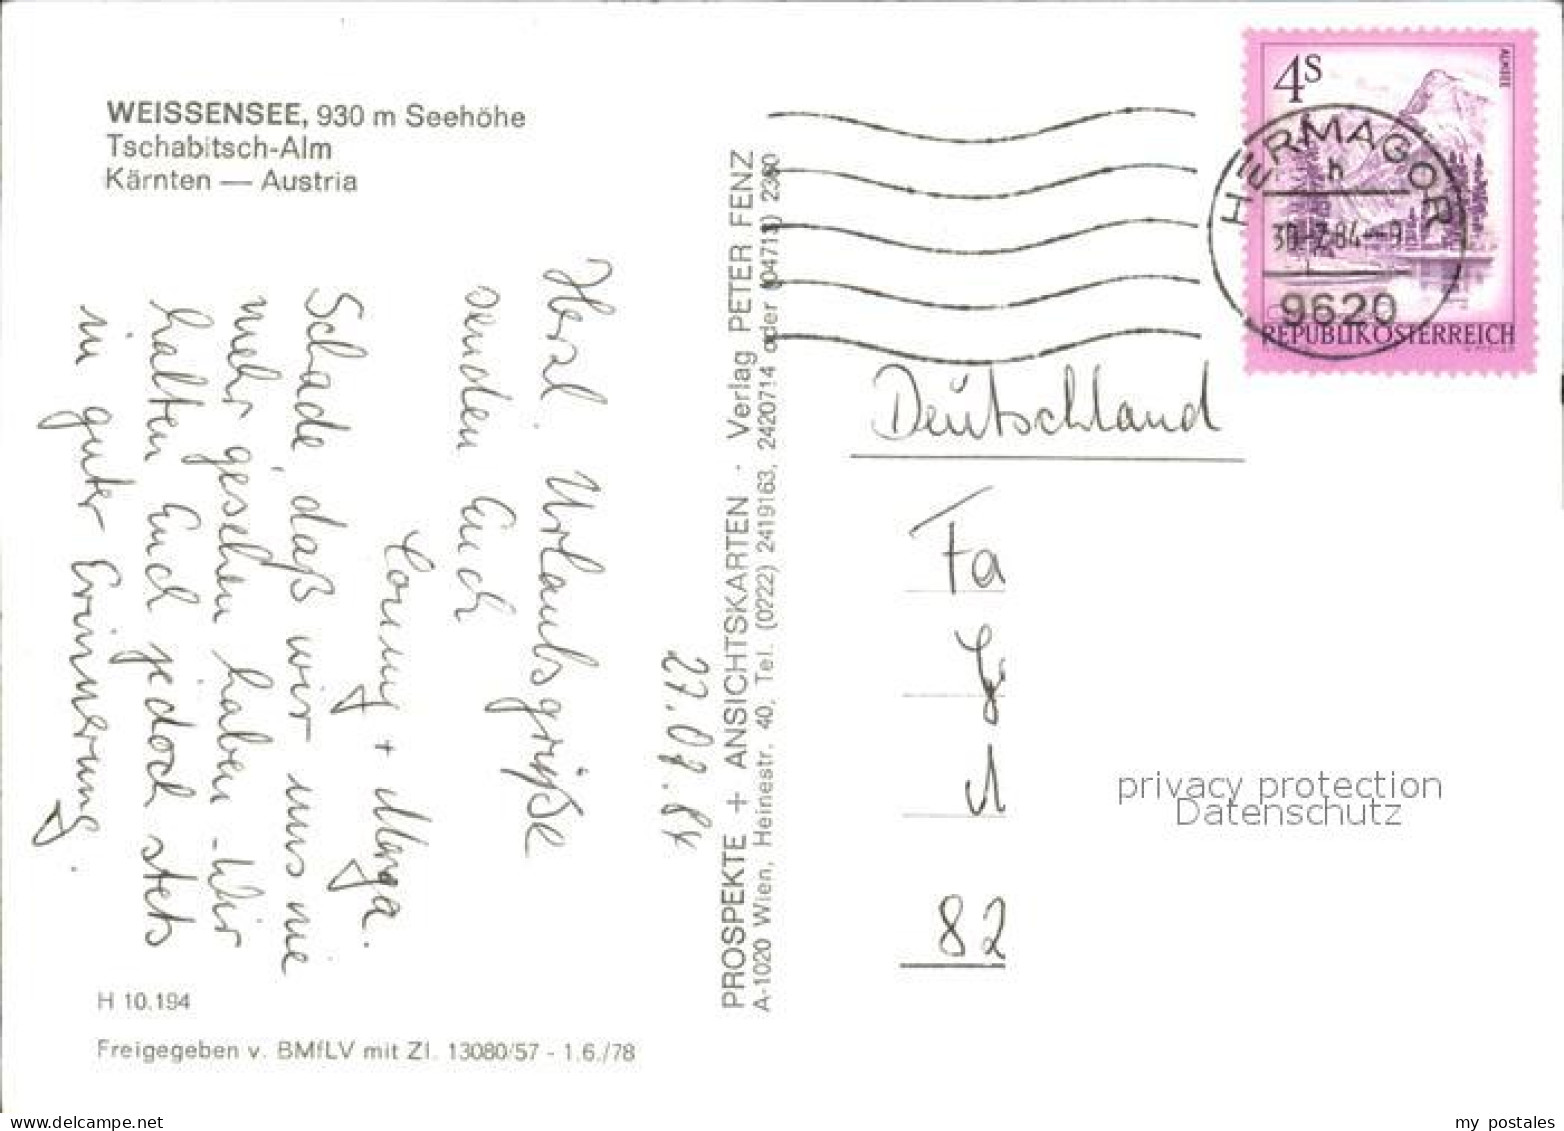 WEISSENSEE, 930 m Seehöhe
Tschabitsch-Alm
Kärnten — Austria
27.07.84
Herzl. Urlaubsgrüße
senden Euch
Conny + Marga.
Schade daß wir uns nie
mehr gesehen haben - Wir
halten Euch jedoch stets
in guter Erinnerung.
H 10.194
Freigegeben v. BMfLV mit Zl. 13080/57 - 1.6./78
PROSPEKTE + ANSICHTSKARTEN · Verlag PETER FENZ
A-1020 Wien, Heinestr. 40, Tel. (0222) 2419163, 2420714 oder (04713) 2360
4S
ALMSEE
REPUBLIK ÖSTERREICH
HERMAGOR
h
30.-7.84--9
9620
Deutschland
Fa
82
privacy protection
Datenschutz
www.delcampe.net
my_postales